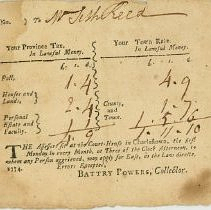 No. To Mr. Seth Reed
Your Province Tax, Your Town Rate,
In Lawful Money. In Lawful Money.
Poll, 1..4 4..9
Houses and
Lands, County,
and
Personal Town,
Estate and
Faculty. 1..11..10
THE Assessor sat at the Court-House in Charlestown, the first
Monday in every Month, at Three of the Clock Afternoon, to
whom any Person aggrieved, may apply for Ease, as the Law directs.
1774. Errors Excepted,
BATTRY POWERS, Collector.